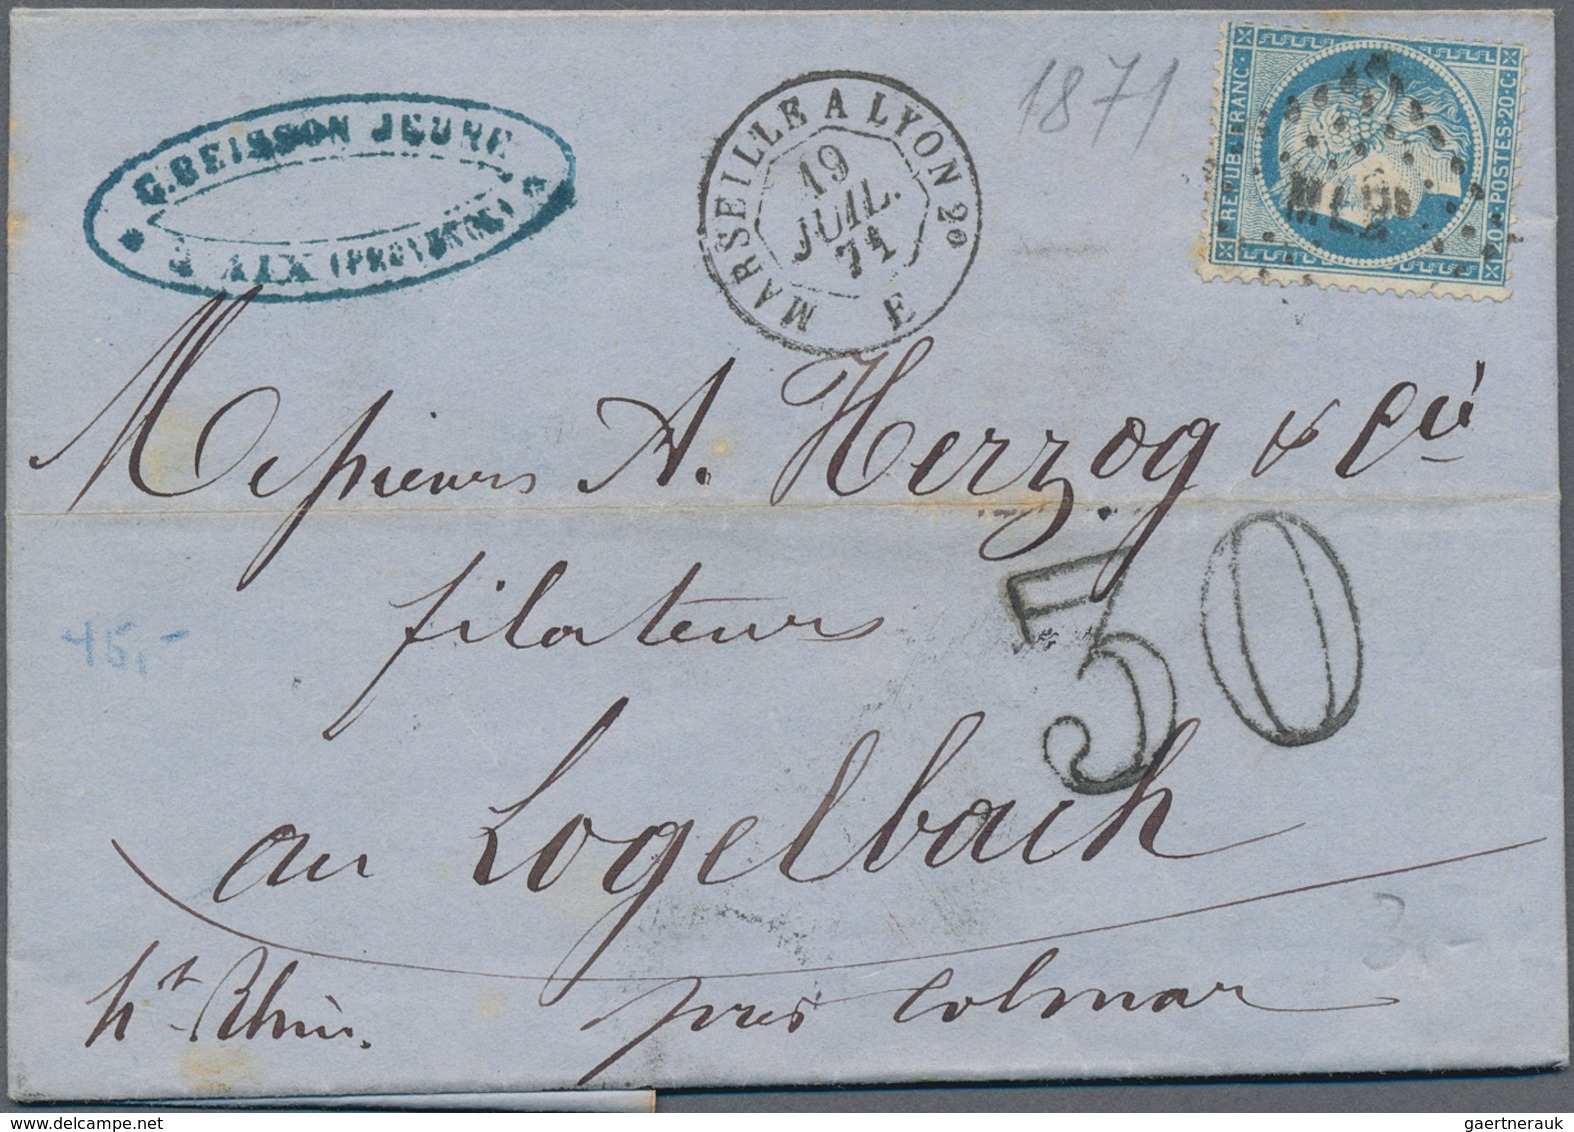 C. BEISSON JEUNE
* À AIX (PROVENCE) *
MARSEILLE A LYON 2°
19
JUIL.
71
E
1871
REPUB·FRANC·
·POSTES·20·C·
ML2°
Messieurs A. Herzog & Cie
filateurs
30
45,-
au Logelbach
3,-
ht. Rhin.
près Colmar
gaertnerauk